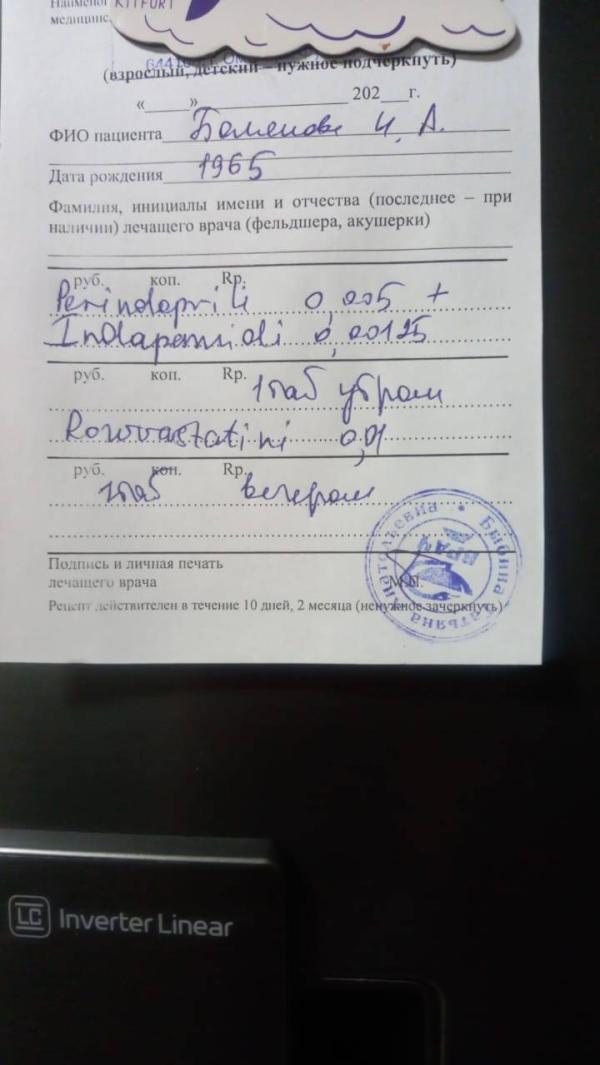 KITFORT
медицинс
(взрослый, детский – нужное подчеркнуть)
«____»____________________ 202___г.
ФИО пациента И. А.
Дата рождения 1965
Фамилия, инициалы имени и отчества (последнее – при
наличии) лечащего врача (фельдшера, акушерки)
руб. коп. Rp.
Perindoprili 0,005 +
Indapamidi 0,00125
руб. коп. Rp. 1таб утром
Rosuvastatini 0,01
руб. коп. Rp.
1таб вечером
Подпись и личная печать
лечащего врача М.П.
Рецепт действителен в течение 10 дней, 2 месяца (ненужное зачеркнуть)
ВРАЧ
LC Inverter Linear